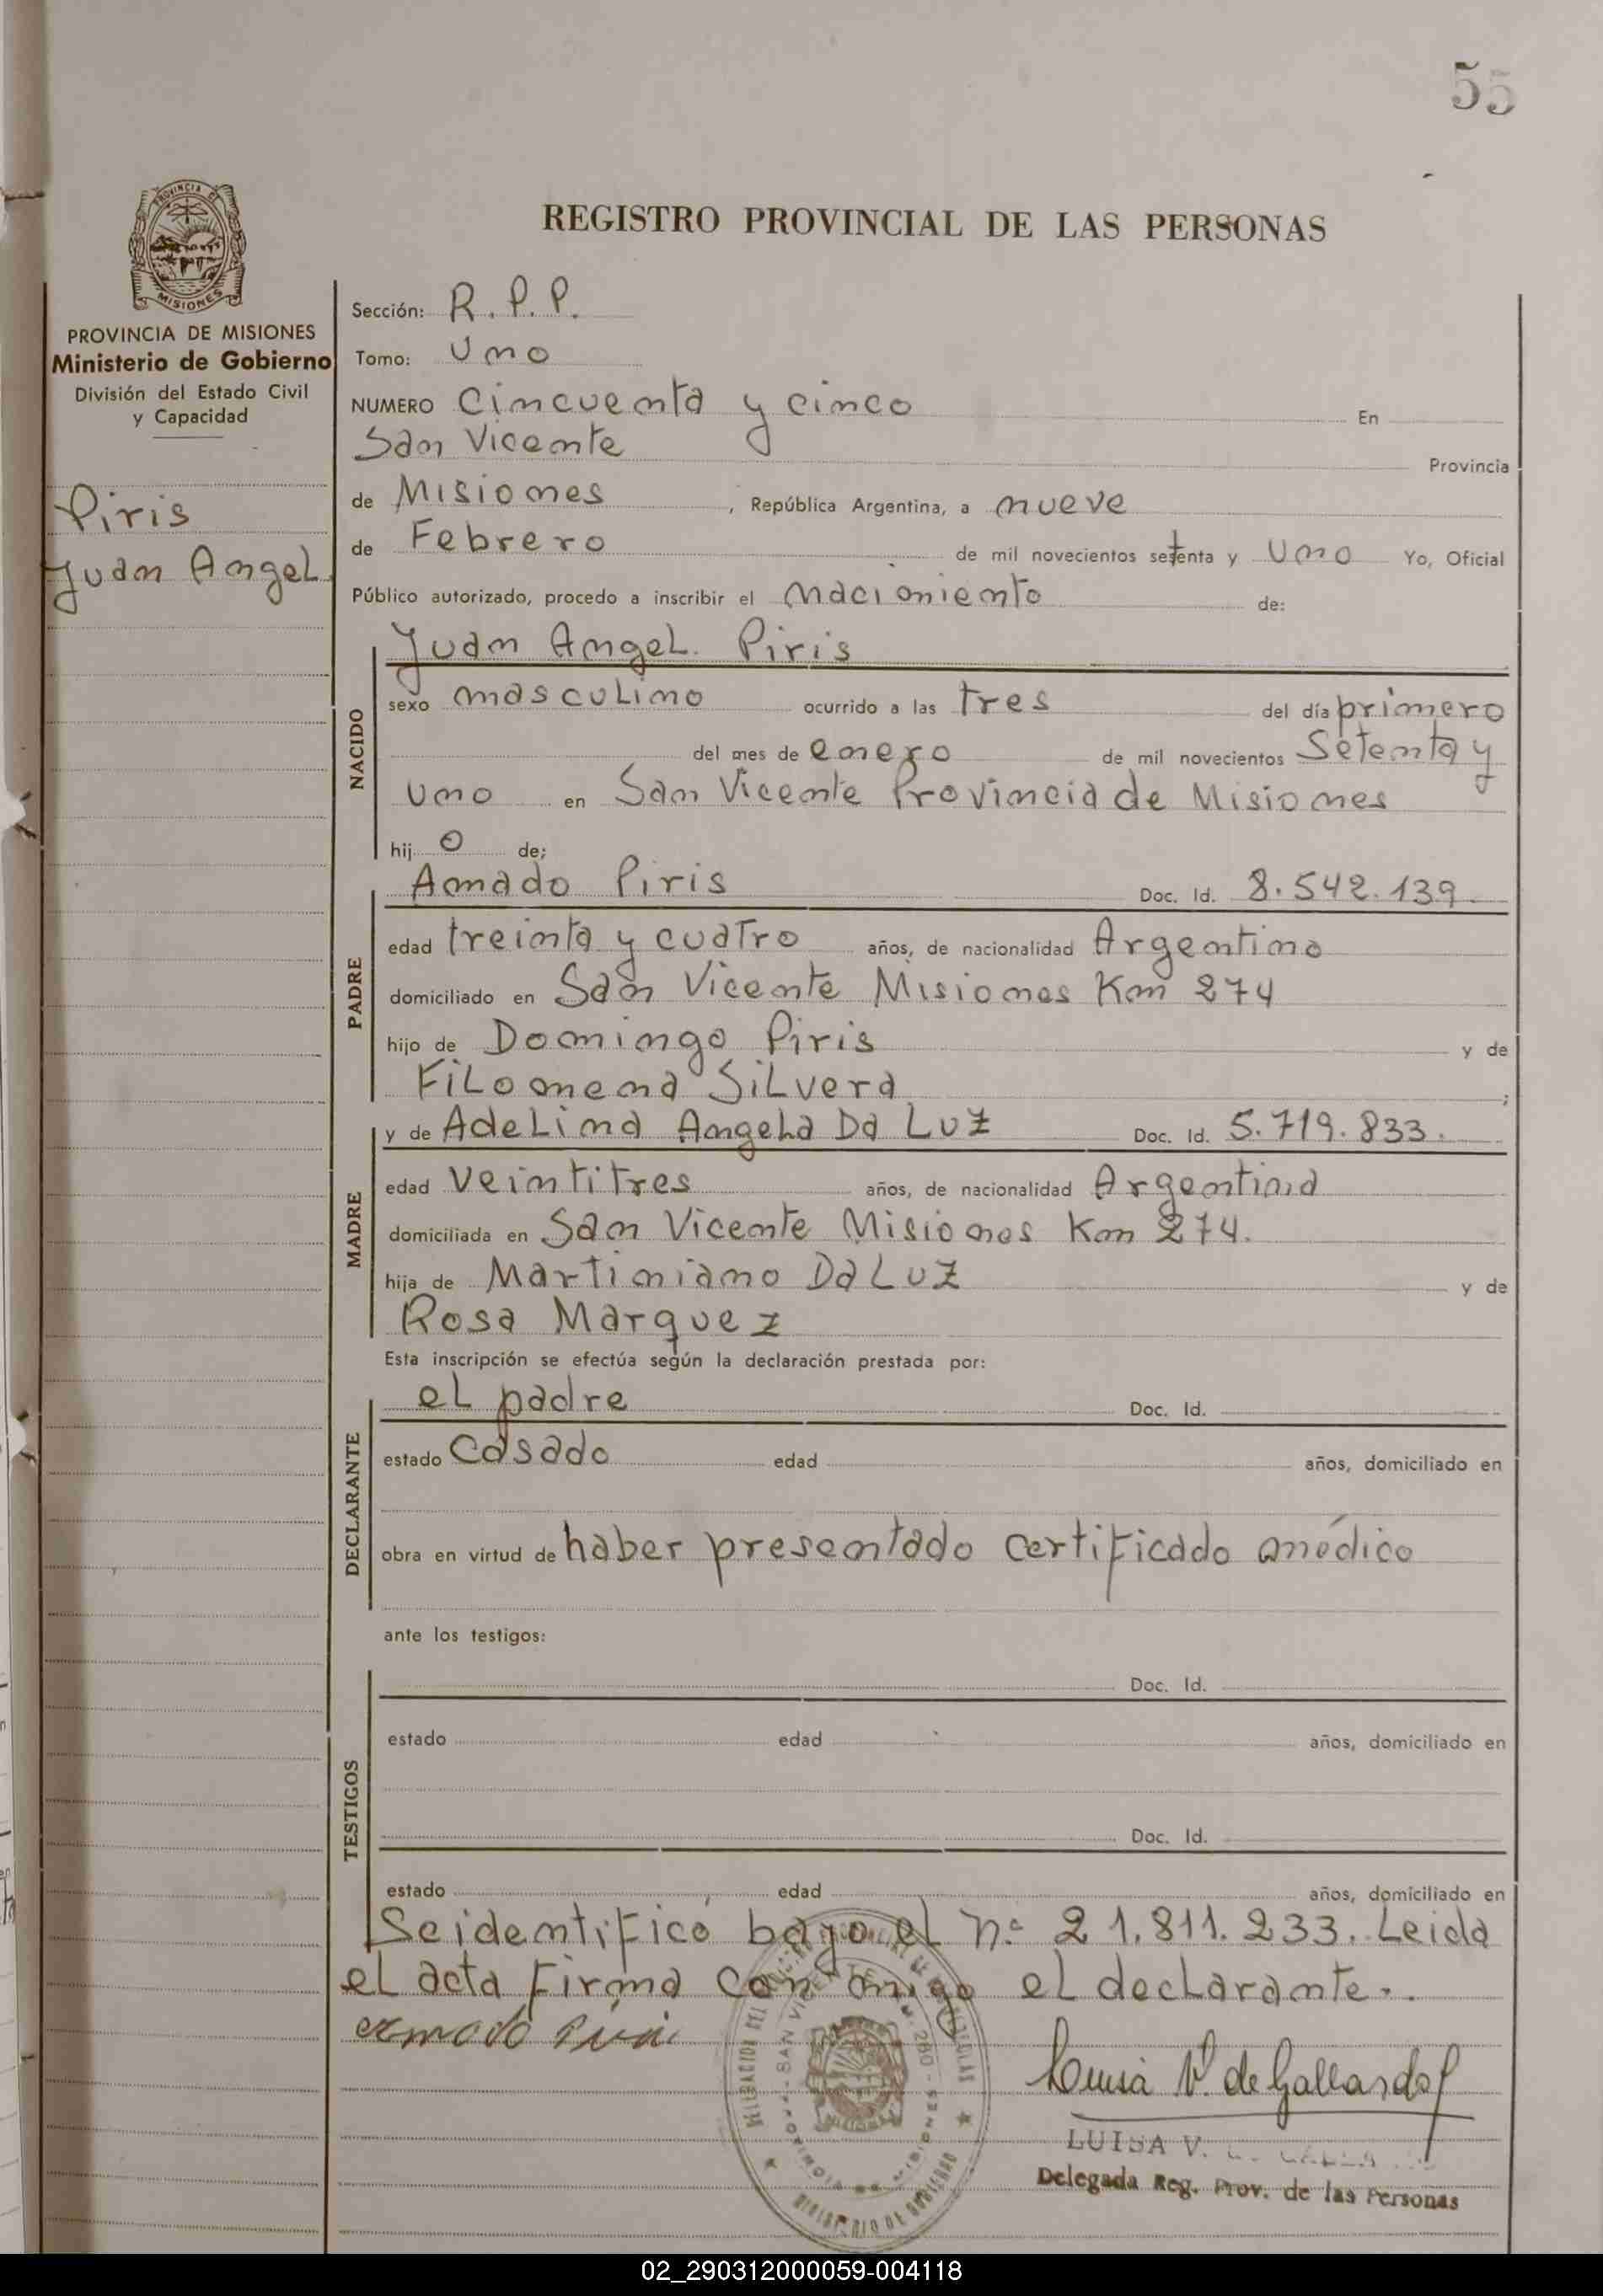 55
REGISTRO PROVINCIAL DE LAS PERSONAS
PROVINCIA DE MISIONES
Ministerio de Gobierno
División del Estado Civil
y Capacidad
Piris
Juan Angel
Sección: R.P.P.
Tomo: Uno
NUMERO Cincuenta y cinco En
San Vicente Provincia
de Misiones, República Argentina, a nueve
de Febrero de mil novecientos setenta y Uno Yo, Oficial
Público autorizado, procedo a inscribir el nacimiento de:
NACIDO
Juan Angel Piris
sexo masculino ocurrido a las tres del día primero
del mes de enero de mil novecientos Setenta y
Uno en San Vicente Provincia de Misiones
hij o de;
PADRE
Amado Piris Doc. Id. 8.542.139
edad treinta y cuatro años, de nacionalidad Argentino
domiciliado en San Vicente Misiones Km 274
hijo de Domingo Piris y de
Filomena Silvera ;
MADRE
y de Adelina Angela Da Luz Doc. Id. 5.719.833.
edad Veintitres años, de nacionalidad Argentina
domiciliada en San Vicente Misiones Km 274.
hija de Martiniano Da Luz y de
Rosa Marquez
Esta inscripción se efectúa según la declaración prestada por:
DECLARANTE
el padre Doc. Id.
estado Casado edad años, domiciliado en
obra en virtud de haber presentado certificado médico
ante los testigos:
TESTIGOS
Doc. Id.
estado edad años, domiciliado en
Doc. Id.
estado edad años, domiciliado en
Se identificó bajo el nº 21.811.233. Leida
el acta firma con migo el declarante.
Amado Piris
Luisa V. de Gallardo
LUISA V.
Delegada Reg. Prov. de las Personas
MINISTERIO DE GOBIERNO
02_290312000059-004118